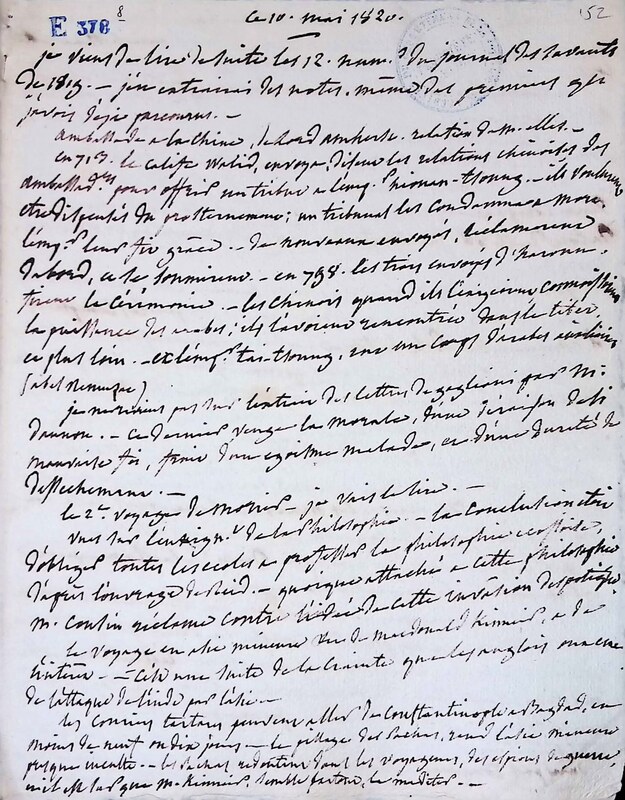 E 378
8
152
ce 10. mai 1820.
je viens de lire de suite les 12. num.s du journal des savants
de 1819. — j'en extrairai des notes, même des premiers que
j'avois déjà parcourus. —
ambassade a la Chine, de lord amherst. relation de m. elles. —
en 713. le calife Walid, envoya, disent les relations chinoises des
ambassad.rs pour offrir un tribut a l'emp.r hiouan-tsoung — ils voulurent
etre dispensés du prosternement; un tribunal les condamna a mort
l'emp.r leur fit grâce. — de nouveaux envoyés, réclamerent
d'abord, et se soumirent. — en 798. les trois envoyés d'haroun
firent la cérémonie. — les chinois quand ils l'exigeoient connoissoient
la puissance des arabes; ils l'avoient rencontrée dans le tibet,
et plus loin. — et l'emp.r tai-tsoung, eut un corps d'arabes auxiliaires
(abel Remusat)
je ne reviens pas sur l'extrait des lettres de gagliani par M.
daunou. — ce dernier venge la morale, d'une dérision de si
mauvaise foi, fruit d'un egoïsme malade, et d'une dureté de
dessechement. —
le 2.e voyage de morier — je vais le lire. —
vues sur l'enseign.t de la philosophie. — la conclusion etoit
d'obliger toutes les ecoles a professer la philosophie ecossoise,
d'après l'ouvrage de Reid. — quoique attaché a cette philosophie
m. Cousin réclame contre l'idée de cette invasion despotique.
le voyage en asie mineure &c de macdonald Kinneir, a de
l'intérêt. — C'est une suite de la crainte que les anglois ont eue
de l'attaque de l'inde par l'asie. —
les Couriers tartares peuvent aller de Constantinople a Bagdad, en
moins de neuf ou dix jours — le pillage des Pachas, rend l'asie mineure
presque inculte. — les pachas redoutent dans les voyageurs, des espions de guerre,